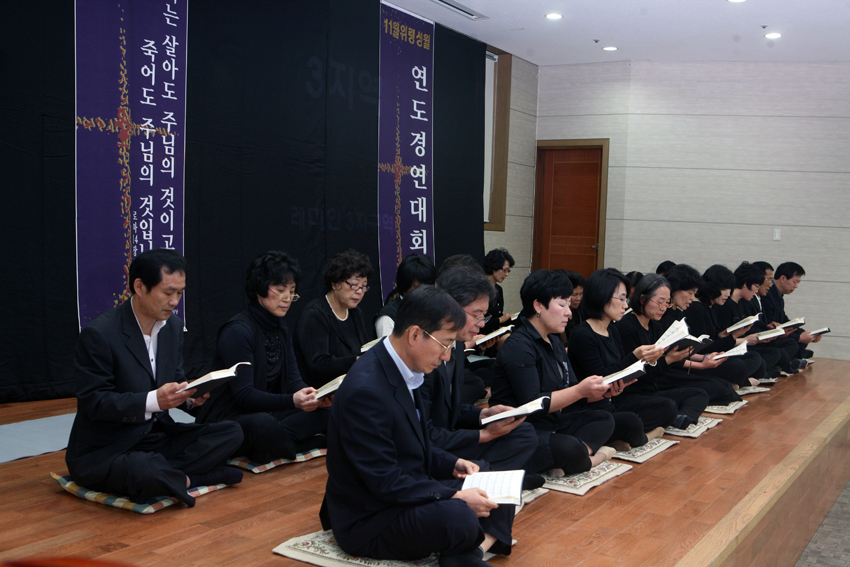 는 살아도 주님의 것이고
죽어도 주님의 것입니
로마14장
11월위령성월
연도경연대회